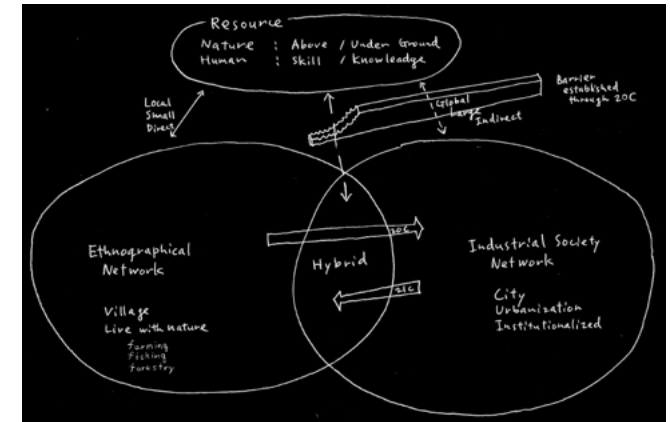 Resource
Nature : Above / Under Ground
Human : Skill / Knowleadge
Local
Small
Direct
Global
Large
Indirect
Barrier
established
through 20C
Ethnographical
Network
Village
Live with nature
farming
fishing
forestry
20C
Hybrid
21C
Industrial Society
Network
City
Urbanization
Institutionalized